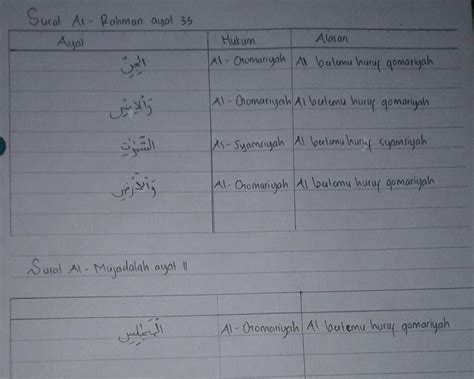 Surat Ar - Rahman ayat 33
Ayat Hukum Alasan
الْجِنِّ Al - Qomariyah Al bertemu huruf qomariyah
وَالْإِنْسِ Al - Qomariyah Al bertemu huruf qomariyah
السَّمٰوٰتِ As - Syamsiyah Al bertemu huruf syamsiyah
وَالْأَرْضِ Al - Qomariyah Al bertemu huruf qomariyah
Surat Al - Mujadalah ayat 11
الْمَجٰلِسِ Al - Qomariyah Al bertemu huruf qomariyah